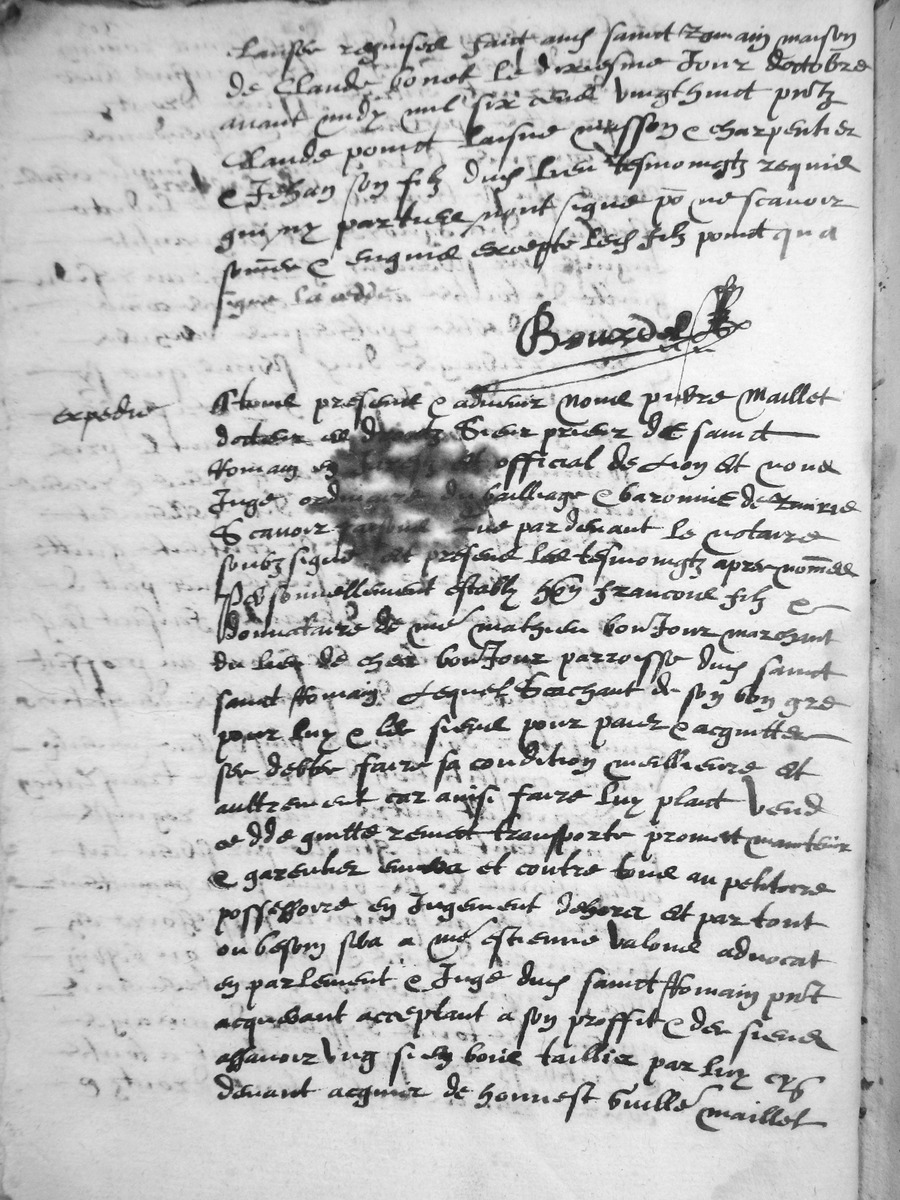 clause requise faict aud sainct Romain maison
de Claude bonet le dixiesme Jour doctobre
avant midy mil six cens vingt huict pntz
Claude poinct laisne masson & charpentier
& Jehan son filz dud lieu tesmoingtz requis
qui ny parties nont signe po ne scavoir
somes & enquis excepte led filz poinct qu a
signe la cedde
Bourdel
expedie
A tous presens & advenir Nous pierre Maillet
docteur es droictz Sieur prieur de sainct
Romain en official de Lion et nous
Juge ordinaire du bailliage & baronnie de
Scavoir faisons que par devant le notaire
soubz signe et presens les tesmoingtz apres nomes
personnellement estably francois filz &
donnataire de me mathieu bonJour marchant
du lieu de chez bonJour parroisse dud sainct
sainct Romain Lequel Sachant de son bon gre
pour luy & les siens pour paier & acquitter
ses debtes faire sa condition meillieure et
aultrement car ainsi faire luy plaict vend
cedde quitte remect transporte promect maintenir
& garentier envers et contre tous au petitoire
possessoire en Jugement dehors et par tout
ou besoin sera a me estienne valous advocat
en parlement & Juge dud sainct Romain pnt
acquerant acceptant a son proffit & des siens
assavoir ung sien bois taillier par luy cy
devant acquis de honnest Guille maillet